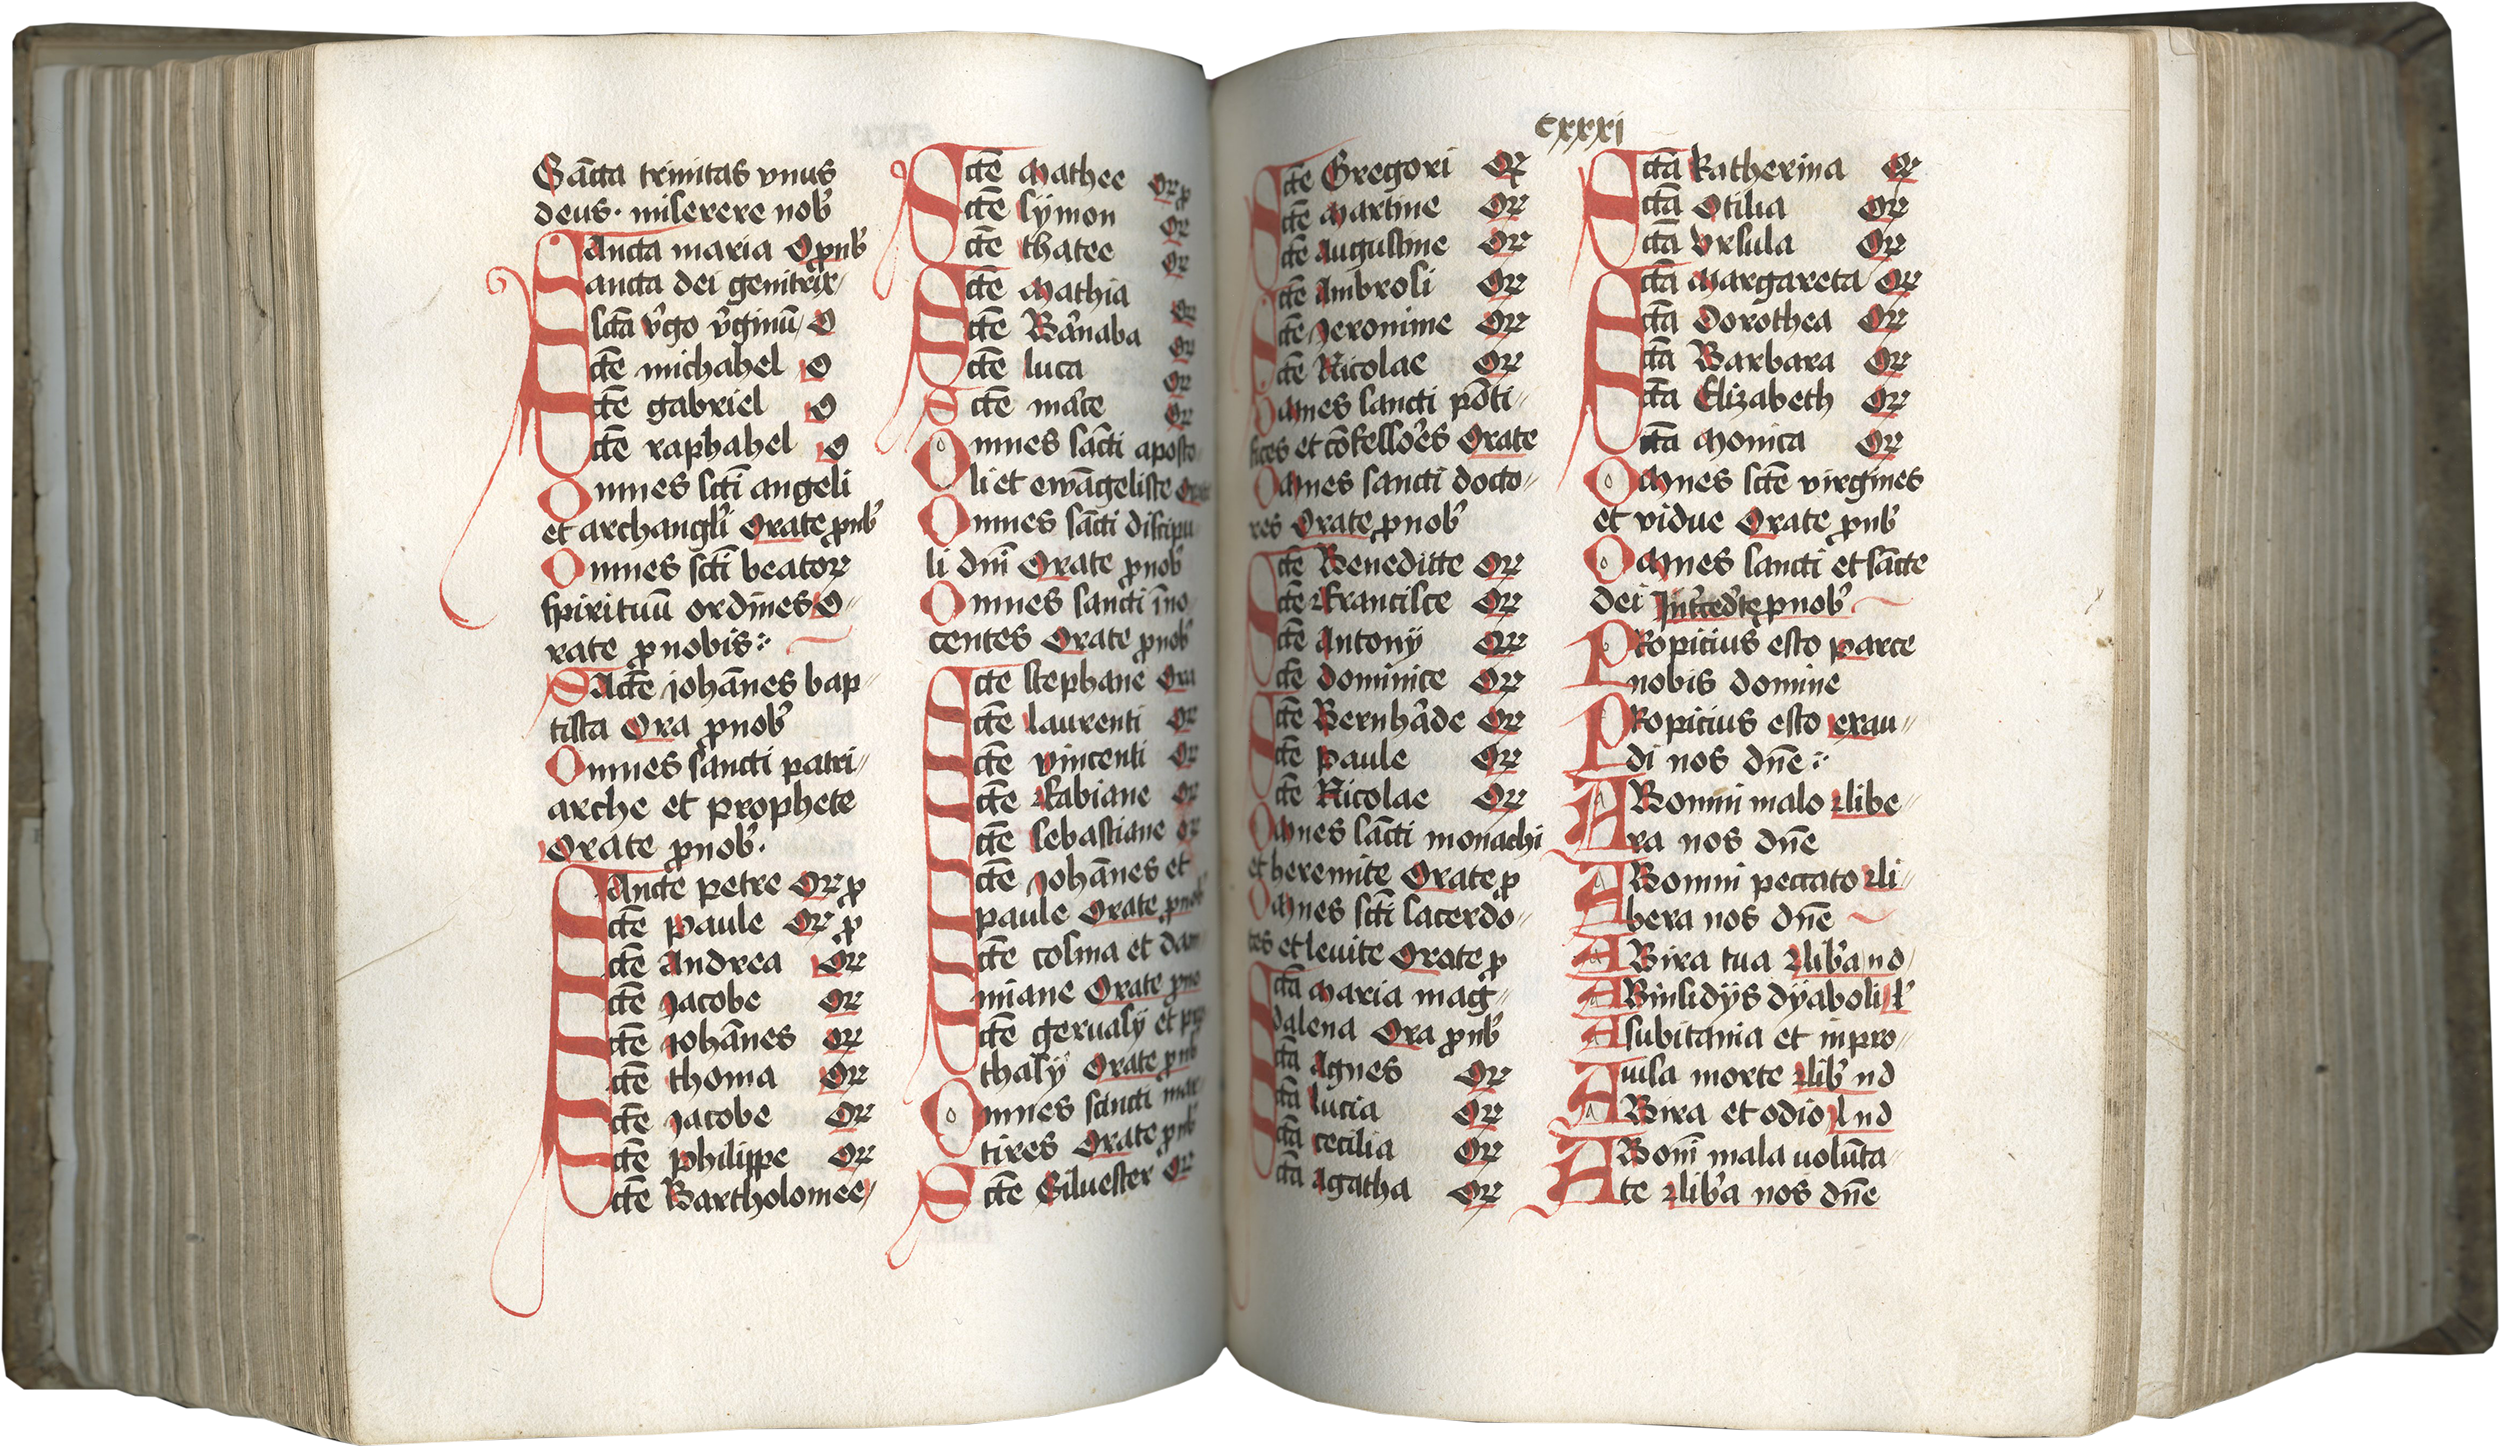 Sācta trinitas vnus
deus · miserere nob᷒
Sancta maria O ꝓnb᷒
Sancta dei genitrix
Sctā v᷒go v᷒ginū O
Sctē michahel O
Sctē gabriel O
Sctē raphahel O
Omnes sctī angeli
et archangl᷒i Orate ꝓnb᷒
Omnes sctī beatoꝝ
spirituū ordines O-
rate ꝓ nobis
SActē iohānes bap-
tista Ora ꝓ nob᷒
Omnes sancti patri-
arche et prophete
Orate ꝓ nob᷒.
SAncte petre Oꝝ ꝓ
Sctē Paule Oꝝ ꝓ
Sctē Andrea Oꝝ
Sctē Jacobe Oꝝ
Sctē Johānes Oꝝ
Sctē thoma Oꝝ
Sctē Jacobe Oꝝ
Sctē philippe Oꝝ
Sctē Bartholomee
Sctē Mathee Oꝝ ꝓ
Sctē symon Oꝝ
Sctē thatee Oꝝ
Sctē Mathia Oꝝ
Sctē Bar᷒naba Oꝝ
Sctē luca Oꝝ
Sctē mar᷒ce Oꝝ
Omnes sācti aposto
li et ewāgeliste
Omnes sācti discipu
li dnī Orate ꝓ nob᷒
Omnes sancti īno
centes Orate ꝓ nob᷒
Scte stephane Ora
Sctē laurenti Oꝝ
Sctē vincenti Oꝝ
Sctē Fabiane Oꝝ
Sctē sebastiane Oꝝ
Sctē Johānes et
paule Orate ꝓ nob᷒
Sctē cosma et dam
miane Orate ꝓ no
Sctē geruasij et pro
thasij Orate ꝓ nb᷒
Omnes sancti mar
tires Orate ꝓ nb᷒
Sctē Siluester Oꝝ
cxxxi
Sctē Gregori Oꝝ
Sctē Martine Oꝝ
Sctē Augustine Oꝝ
Sctē Ambrosi Oꝝ
Sctē Jeronime Oꝝ
Sctē Nicolae Oꝝ
OMnes sancti pōti-
fices et cōfesso᷒es Orate
OMnes sancti docto-
res Orate ꝓ nob᷒
Sctē Benedicte Oꝝ
Sctē Francisce Oꝝ
Sctē Antonij Oꝝ
Sctē dominice Oꝝ
Sctē Bernha᷒de Oꝝ
Sctē Paule Oꝝ
Sctē Nicolae Oꝝ
OMnes sācti monachi
et heremite Orate ꝓ
OMnes sctī sacerdo-
tes et leuite Orate ꝓ
Sctā Maria mag-
dalena Ora ꝓ nb᷒
Sctā Agnes Oꝝ
Sctā lucia Oꝝ
Sctā cecilia Oꝝ
Sctā Agatha Oꝝ
Sctā Katherina Oꝝ
Sctā Otilia Oꝝ
Sctā Vrsula Oꝝ
Sctā Margareta Oꝝ
Sctā Dorothea Oꝝ
Sctā Barbara Oꝝ
Sctā Elizabeth Oꝝ
Sctā Monica Oꝝ
OMnes sctē virgines
et vidue Orate ꝓ nb᷒
OMnes sancti et sācte
dei Int᷒ced᷒te ꝓ nob᷒
PRopicius esto parce
nobis domine
PRopicius esto exau-
di nos dnē
ABomni malo libe-
ra nos dnē
ABomni peccato li-
bera nos dnē
ABira tua lib᷒a no
ABinsidijs dyaboli l᷒
A subitania et inpro-
uisa morte lib᷒ no
ABira et odio l no
ABomī mala uolūta-
te lib᷒a nos dnē